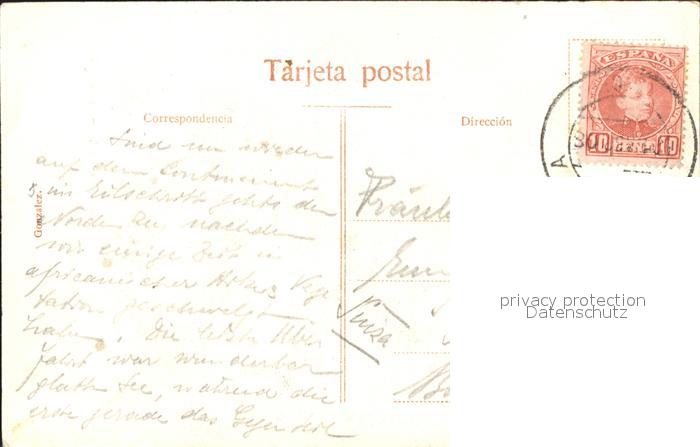 Tarjeta postal
Correspondencia
Dirección
ESPAÑA
10 10
González.
Sind nun wieder
auf dem Continent
im Eilschritt gehts dem
Norden zu, nachdem
wir einige Zeit in
africanischer Vege
tation geschwelgt
haben. Die letzte Über
fahrt war wunderbar
glatte See, während die
erste gerade das Gegenteil
Fräul
privacy protection
Datenschutz